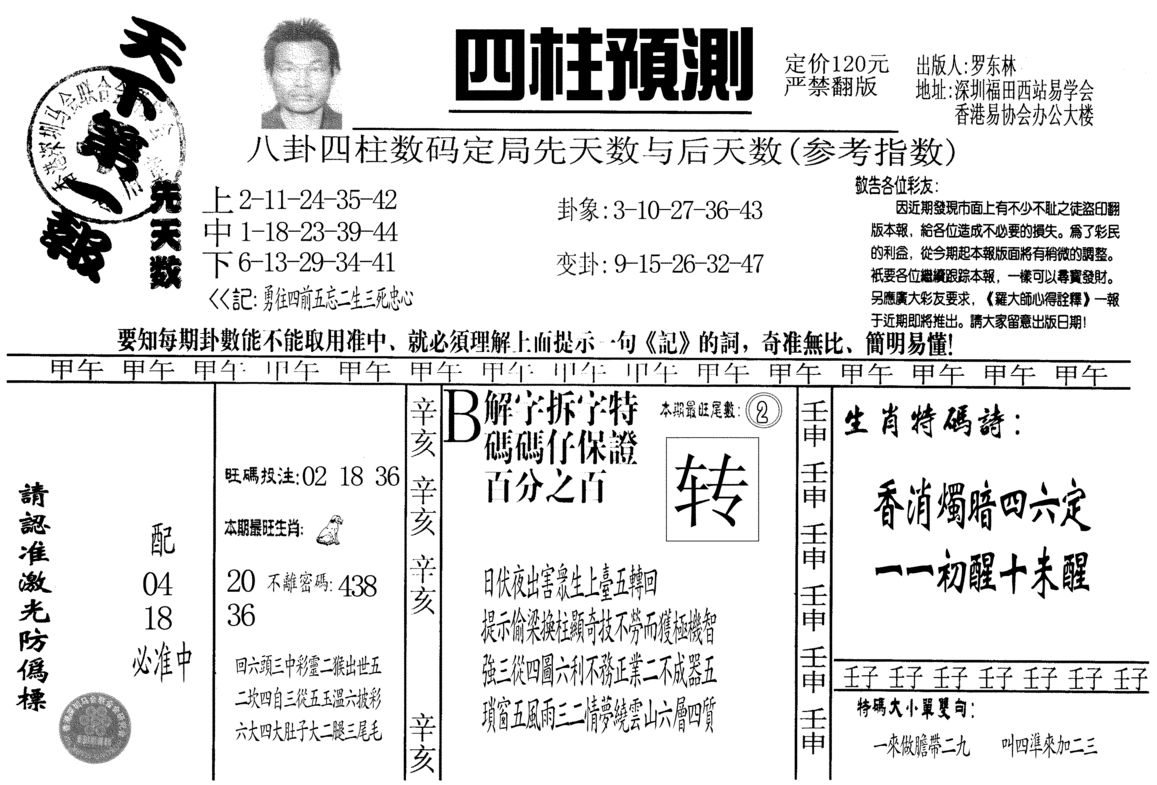 天下第一報
四柱預測
定价120元
严禁翻版
出版人:罗东林
地址:深圳福田西站易学会
香港易协会办公大楼
八卦四柱数码定局先天数与后天数(参考指数)
先天数
上 2-11-24-35-42
中 1-18-23-39-44
下 6-13-29-34-41
<<記:勇住四前五忘二生三死忠心
卦象:3-10-27-36-43
变卦:9-15-26-32-47
敬告各位彩友:
因近期發現市面上有不少不耻之徒盜印翻
版本報，給各位造成不必要的損失。爲了彩民
的利益，從今期起本報版面將有稍微的調整。
衹要各位繼續跟踪本報，一樣可以尋寶發財。
另應廣大彩友要求，《羅大師心得詮釋》一報
于近期即將推出。請大家留意出版日期!
要知每期卦數能不能取用准中、就必須理解上面提示一句《記》的詞，奇准無比、簡明易懂!
甲午 甲午 甲午 甲午 甲午 甲午 甲午 甲午 甲午 甲午 甲午 甲午 甲午 甲午 甲午
請認准激光防僞標
配
04
18
必准中
旺碼投注:02 18 36
本期最旺生肖:
20 不離密碼:438
36
回六頭三中彩靈二猴出世五
二坎四自三從五玉溫六披彩
六大四大肚子大二腿三尾毛
辛亥
辛亥
辛亥
辛亥
B解字拆字特
碼碼仔保證
百分之百
本期最旺尾數:2
转
日伏夜出害衆生上臺五轉回
提示偷梁換柱顯奇技不勞而獲極機智
強三從四圖六利不務正業二不成器五
瑣窗五風雨三二情夢繞雲山六層四質
壬申
壬申
壬申
壬申
壬申
壬申
生肖特碼詩:
香消燭暗四六定
一一初醒十未醒
壬子 壬子 壬子 壬子 壬子 壬子 壬子
特碼大小單雙句:
一來做膽帶二九 叫四準來加二三